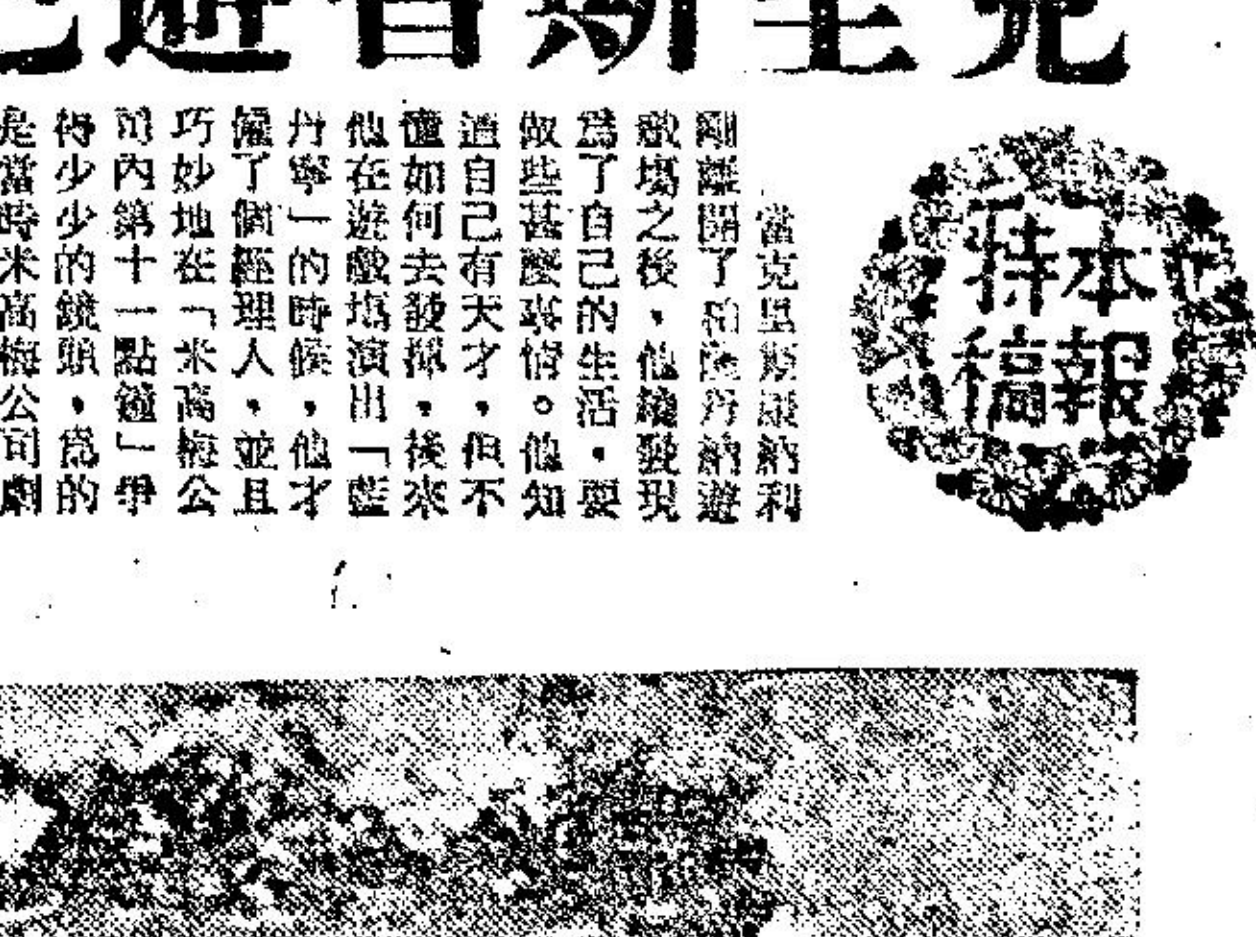 克里斯
本報
特稿
當克里斯康納利
剛離開了柏薩丹納遊
戲場之後，他纔發現
爲了自己的生活，要
做些甚麼事情。他知
道自己有天才，但不
懂如何去發揮，後來
他在遊戲塲演出「藍
丹寧」的時候，他才
僱了個經理人，並且
巧妙地在「米高梅公
司內第十一點鐘」爭
得少少的鏡頭，爲的
是當時米高梅公司劇